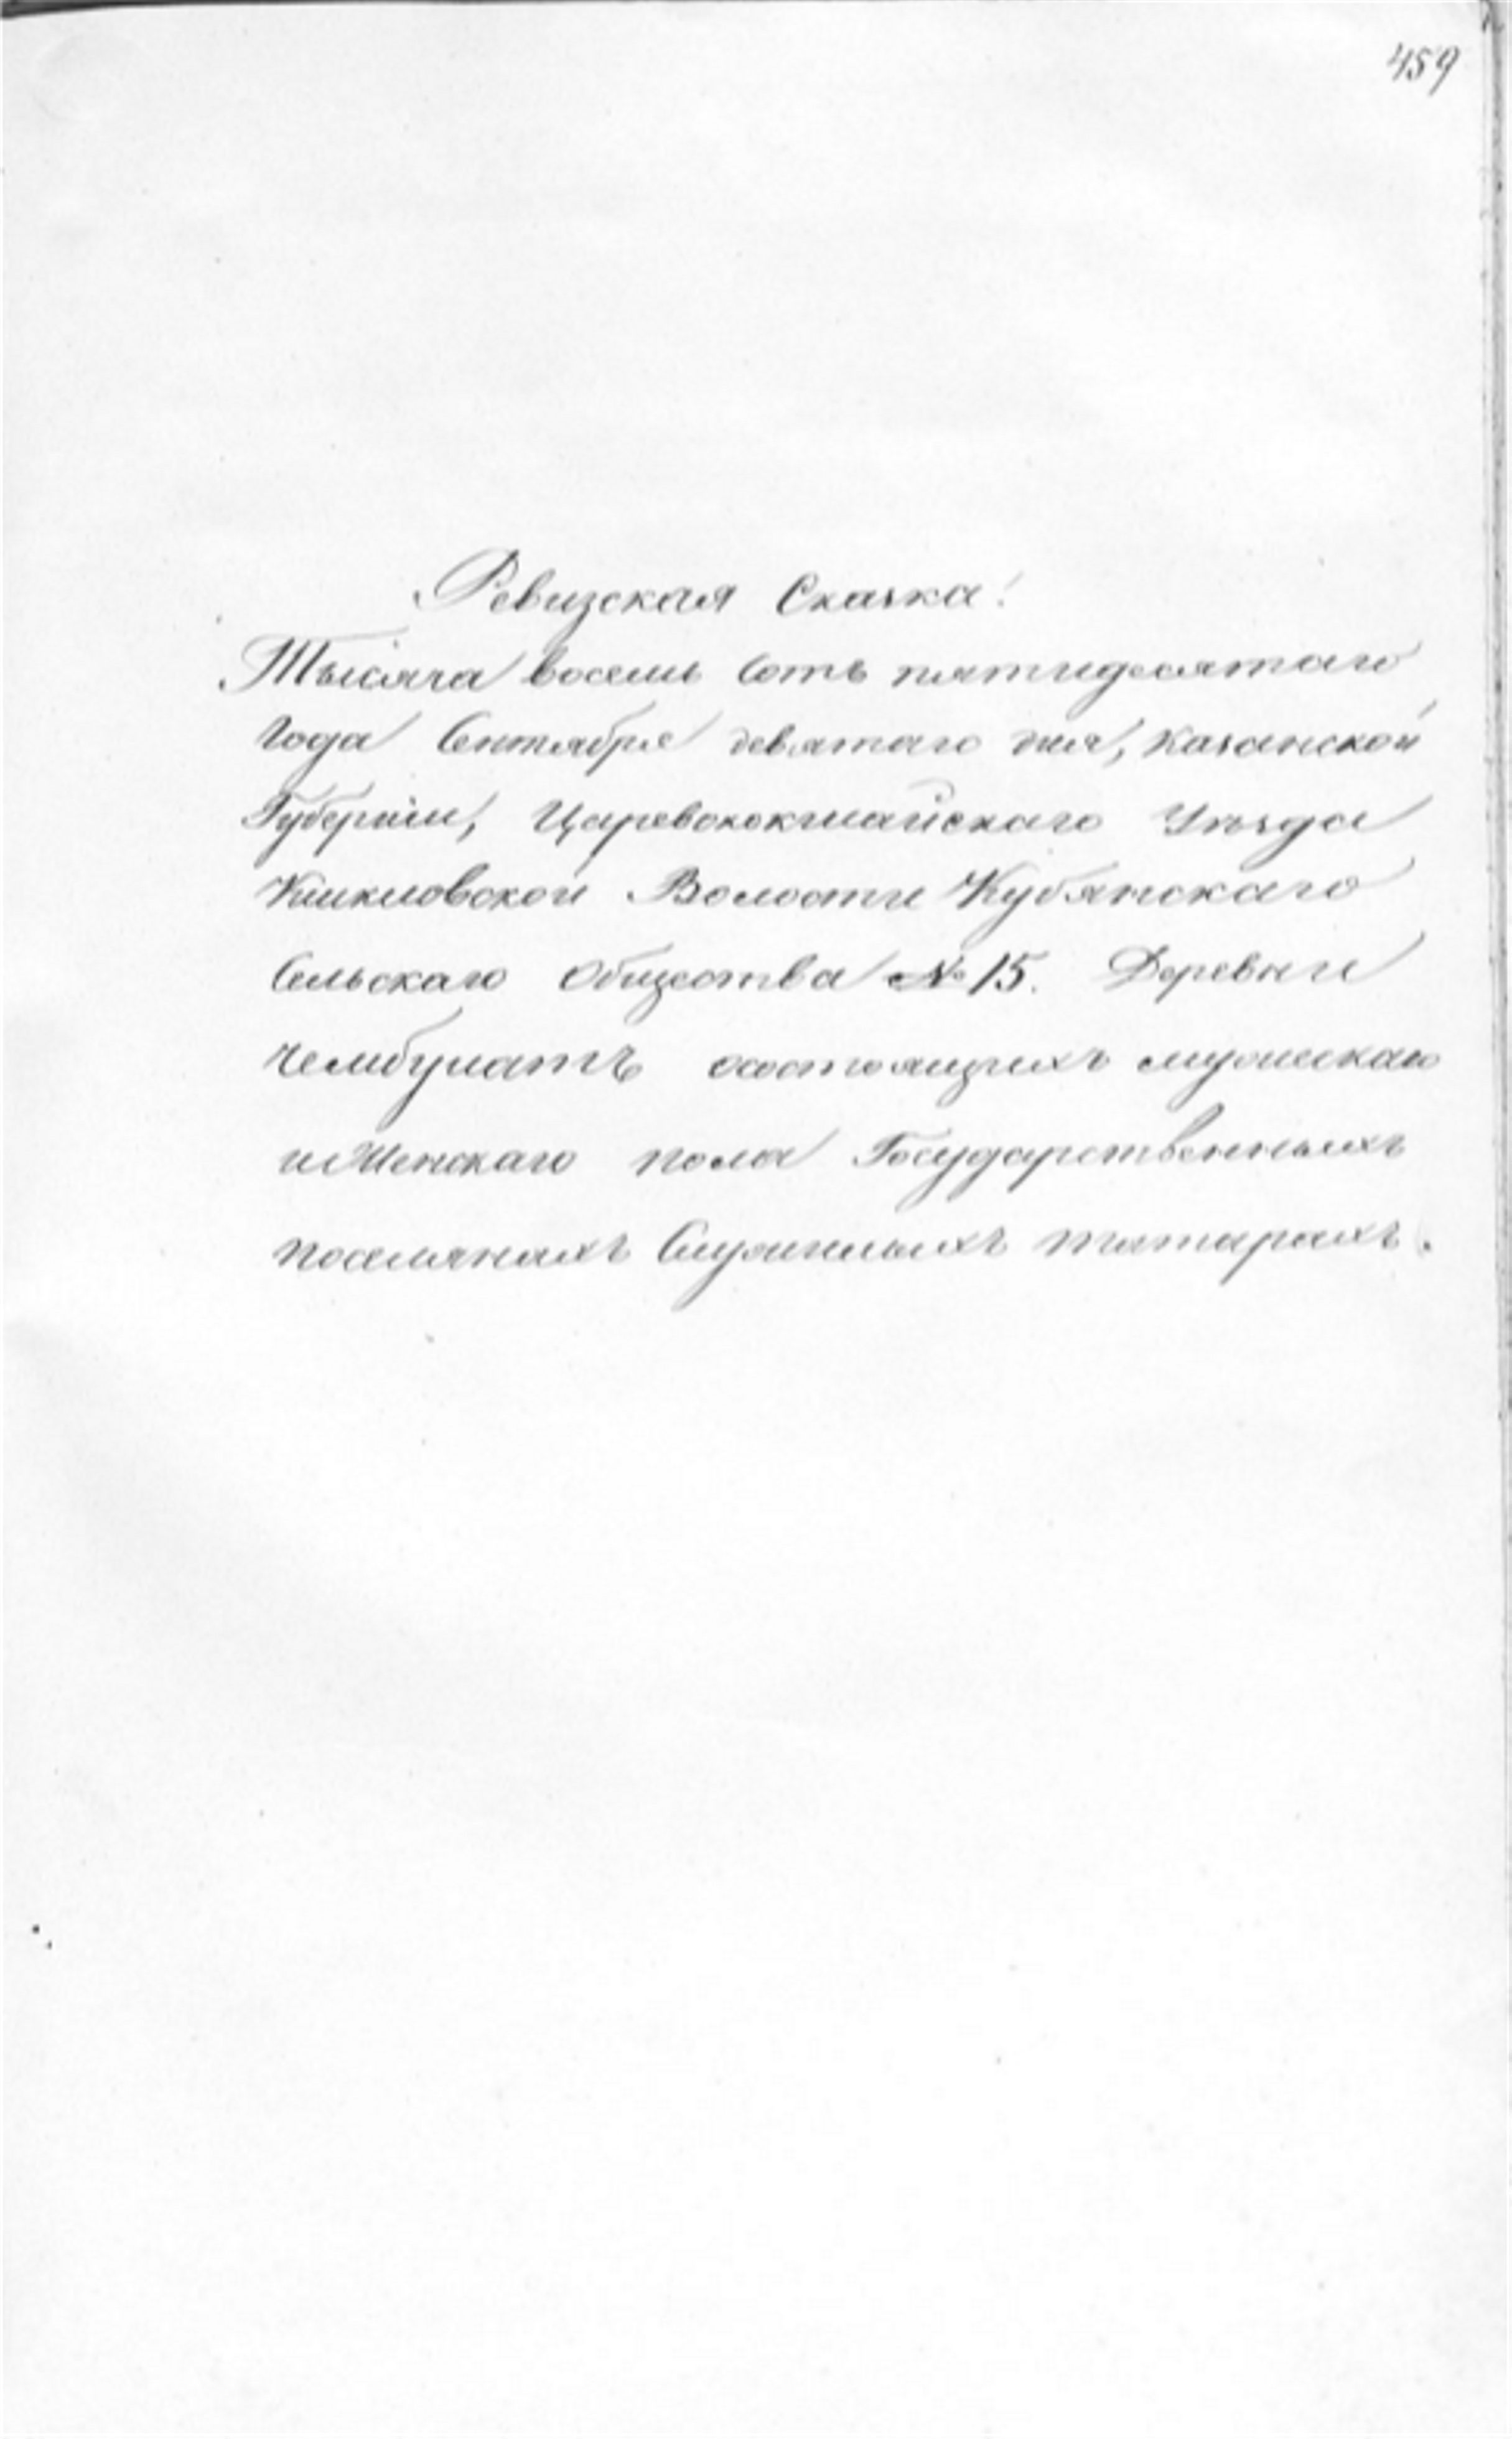 459
Ревизская Сказка!
Тысяча восемь сотъ пятидесятаго
года Сентября девятаго дня, Казанской
Губерніи, Царевококшайскаго Уѣзда
Кшкловской Волости Кубянскаго
Сельскаго Общества № 15. Деревни
Чембулатъ осостоящихъ мужескаго
и Женскаго пола Государственныхъ
поселянахъ Служилыхъ татарахъ.